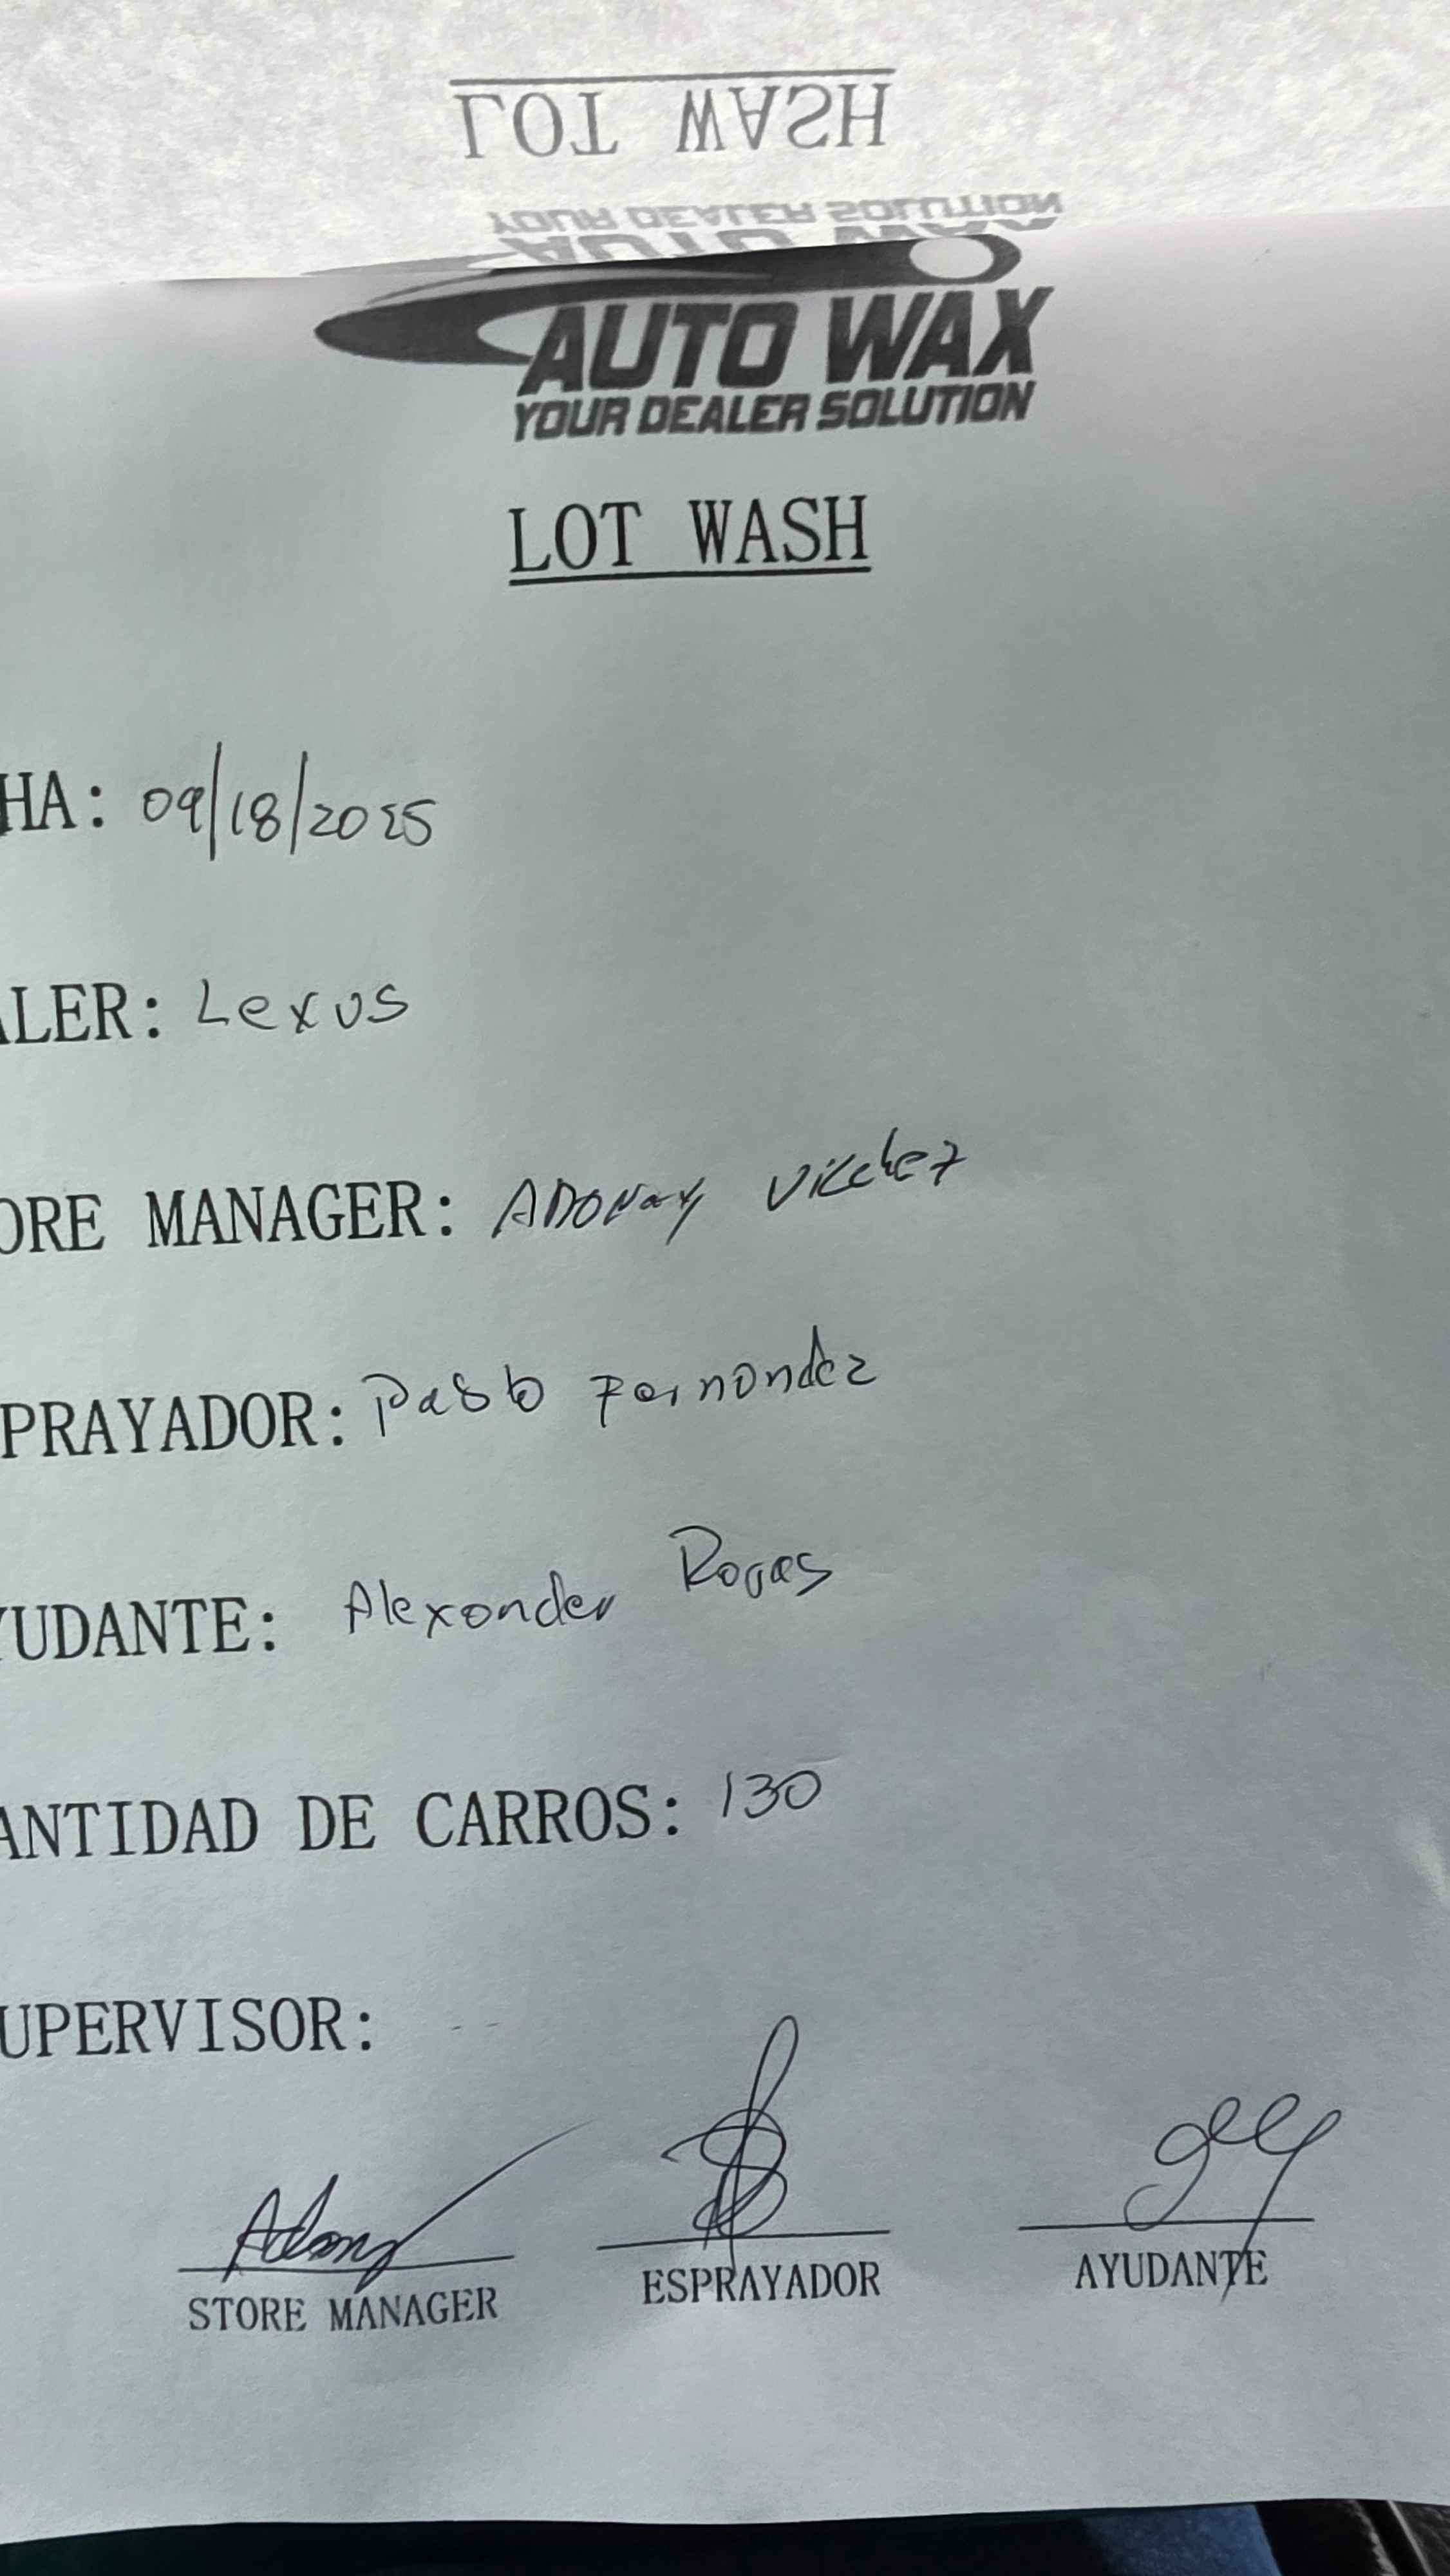 LOT WASH
YOUR DEALER SOLUTION
AUTO WAX
AUTO WAX
YOUR DEALER SOLUTION
LOT WASH
HA: 09/18/2025
ALER: Lexus
ORE MANAGER: ADONAY Vilchez
PRAYADOR: Pablo Fernandez
YUDANTE: Alexander Rojas
ANTIDAD DE CARROS: 130
UPERVISOR:
Adony
STORE MANAGER ESPRAYADOR AYUDANTE